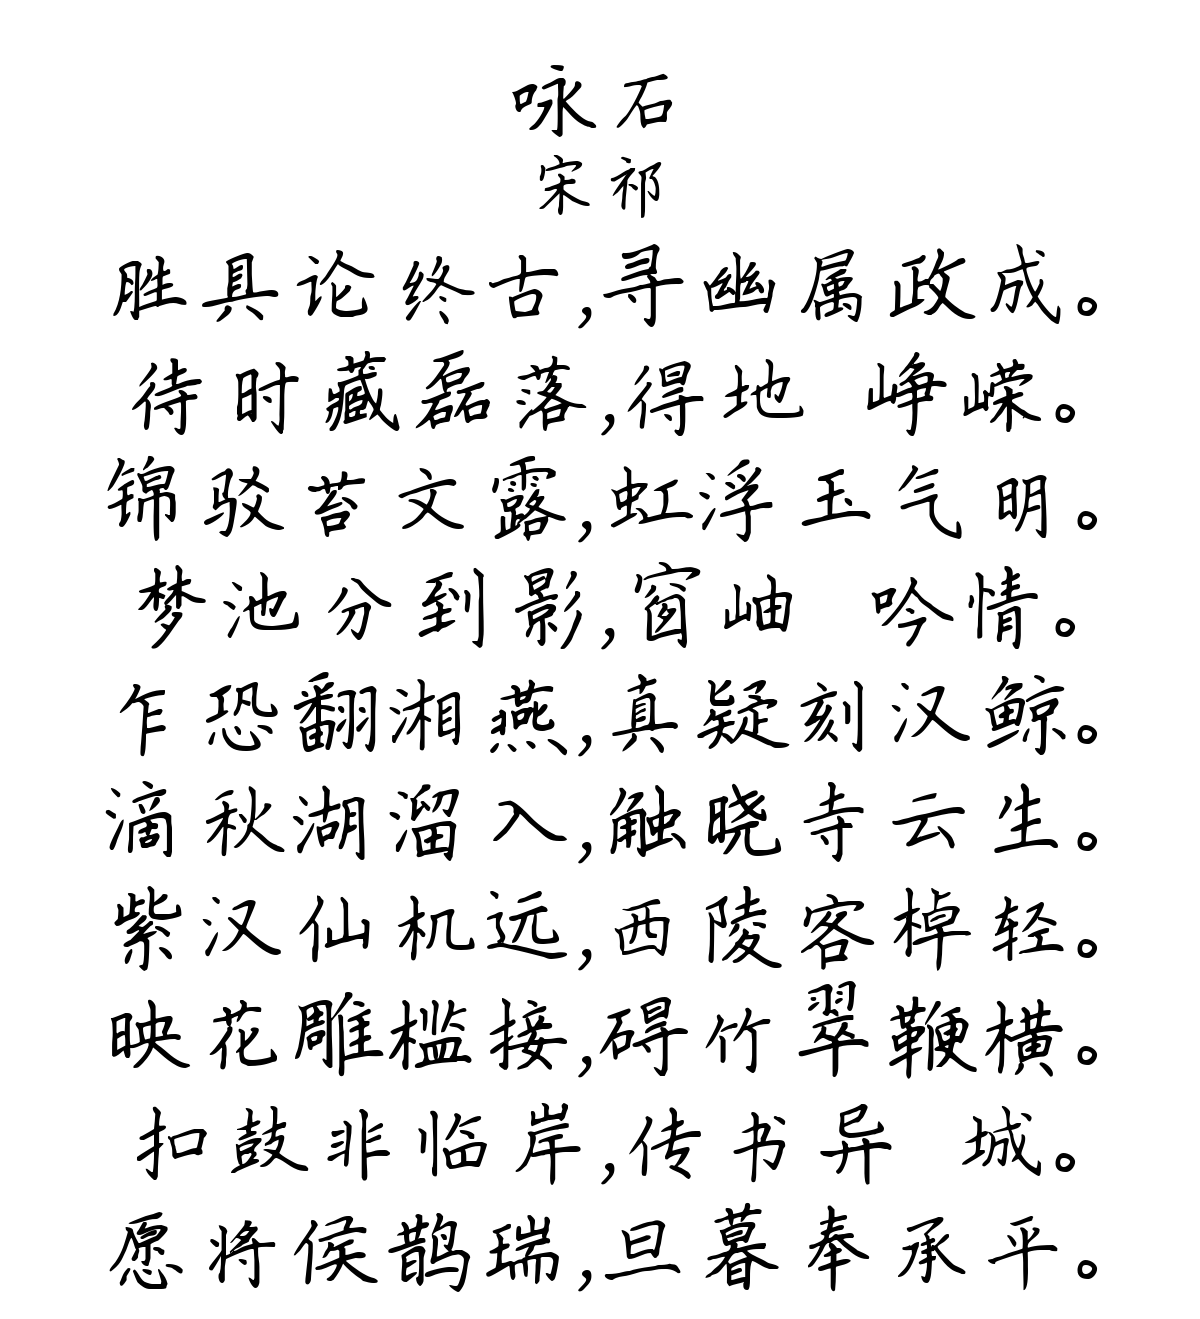 咏石
宋祁
胜具论终古,寻幽属政成。
待时藏磊落,得地 峥嵘。
锦驳苔文露,虹浮玉气明。
梦池分到影,窗岫 吟情。
乍恐翻湘燕,真疑刻汉鲸。
滴秋湖溜入,触晓寺云生。
紫汉仙机远,西陵客棹轻。
映花雕槛接,碍竹翠鞭横。
扣鼓非临岸,传书异 城。
愿将侯鹊瑞,旦暮奉承平。